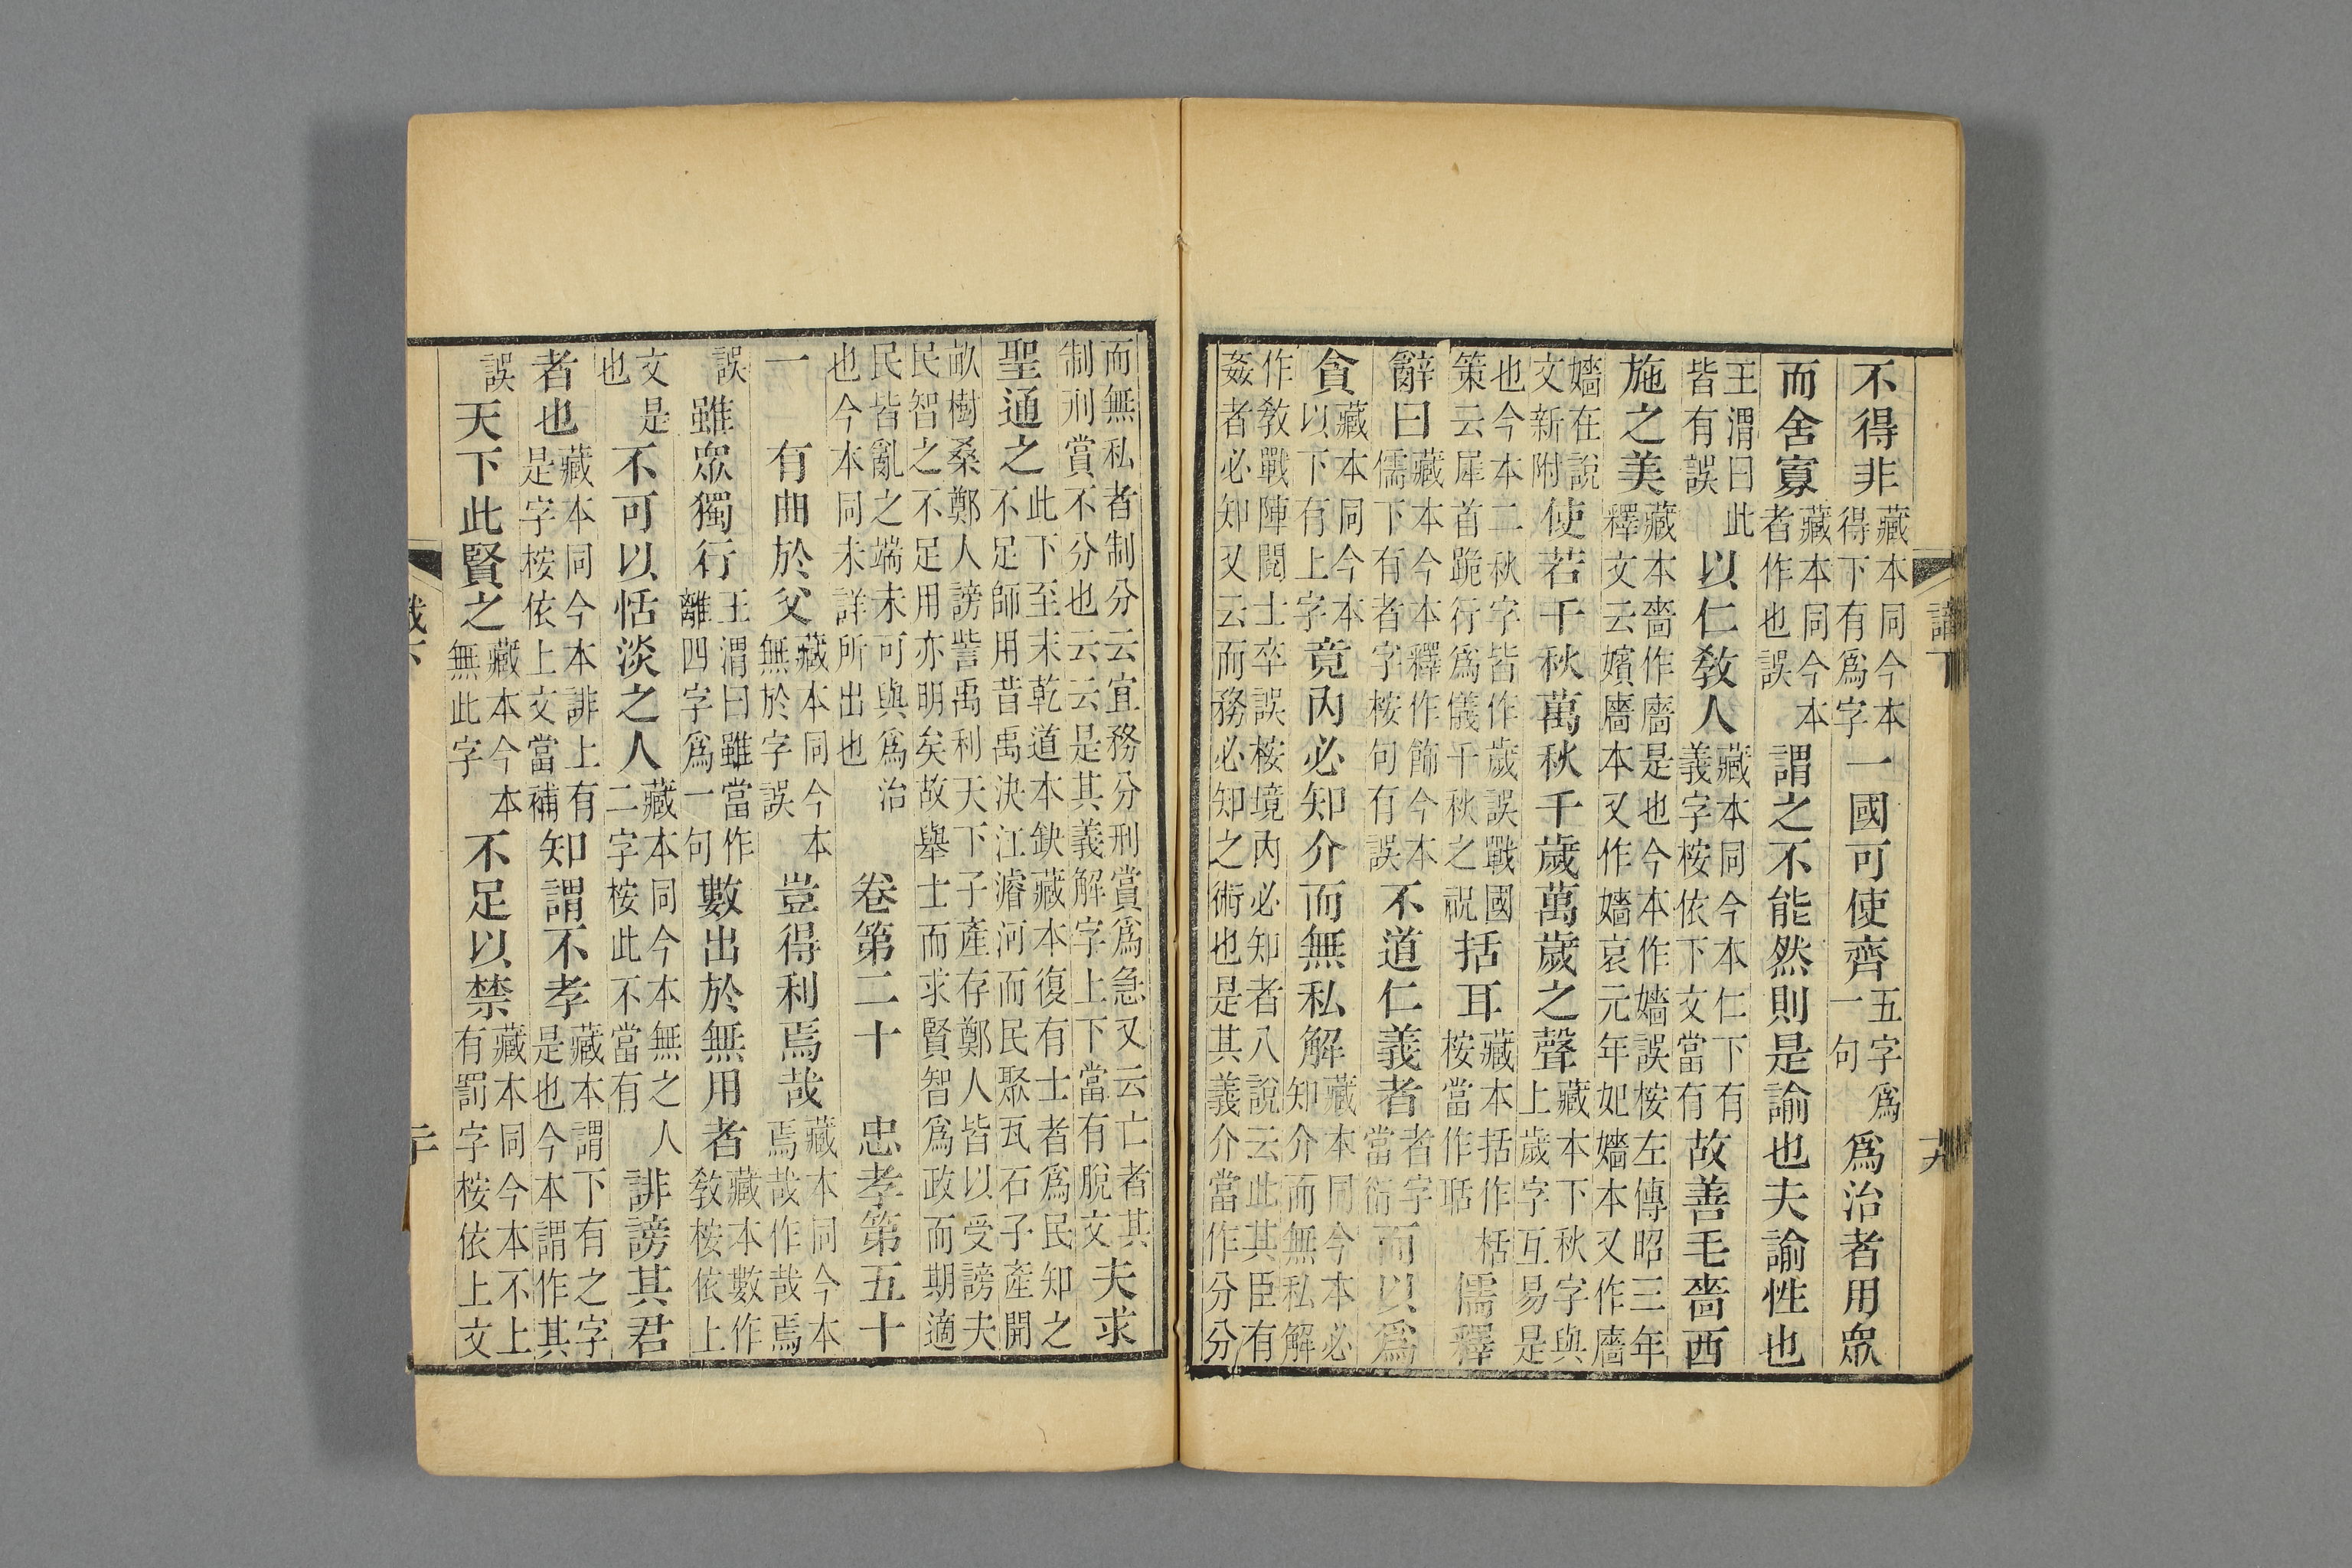 不得非藏本同今本得下有爲字一國可使齊五字爲一句爲治者用眾
而舍寡藏本同今本者作也誤謂之不能然則是諭也夫諭性也
王渭曰此皆有誤以仁教人藏本同今本仁下有義字桉依下文當有故善毛嗇西
施之美藏本嗇作廧是也今本作嬙誤桉左傳昭三年釋文云嬪廧本又作嬙哀元年妃嬙本又作廧
嬙在說文新附使若千秋萬秋千歲萬歲之聲藏本下秋字與上歲字互易是
也今本二秋字皆作歲誤戰國策云犀首跪行爲儀千秋之祝括耳藏本括作栝桉當作聒儒釋
辭曰藏本今本釋作飾今本儒下有者字桉句有誤不道仁義者者字當衍而以爲
貪藏本同今本以下有上字竟內必知介而無私解藏本同今本必知介而無私解
作教戰陣閱士卒誤桉境內必知者八說云此其臣有姦者必知又云而務必知之術也是其義介當作分分
而無私者制分云宜務分刑賞爲急又云亡者其制刑賞不分也云云是其義解字上下當有脫文夫求
聖通之此下至末乾道本缺藏本復有士者爲民知之不足師用昔禹決江濬河而民聚瓦石子產開
畝樹桑鄭人謗訾禹利天下子產存鄭人皆以受謗夫民智之不足用亦明矣故舉士而求賢智爲政而期適
民皆亂之端未可與爲治也今本同未詳所出也 卷第二十 忠孝第五十
一 有曲於父藏本同今本無於字誤豈得利焉哉藏本同今本焉哉作哉焉
誤雖眾獨行王渭曰雖當作離四字爲一句數出於無用者藏本數作教桉依上
文是也不可以恬淡之人藏本同今本無之人二字桉此不當有誹謗其君
者也藏本同今本誹上有是字桉依上文當補知謂不孝藏本謂下有之字是也今本謂作其
誤天下此賢之藏本今本無此字不足以禁藏本同今本不上有罰字桉依上文